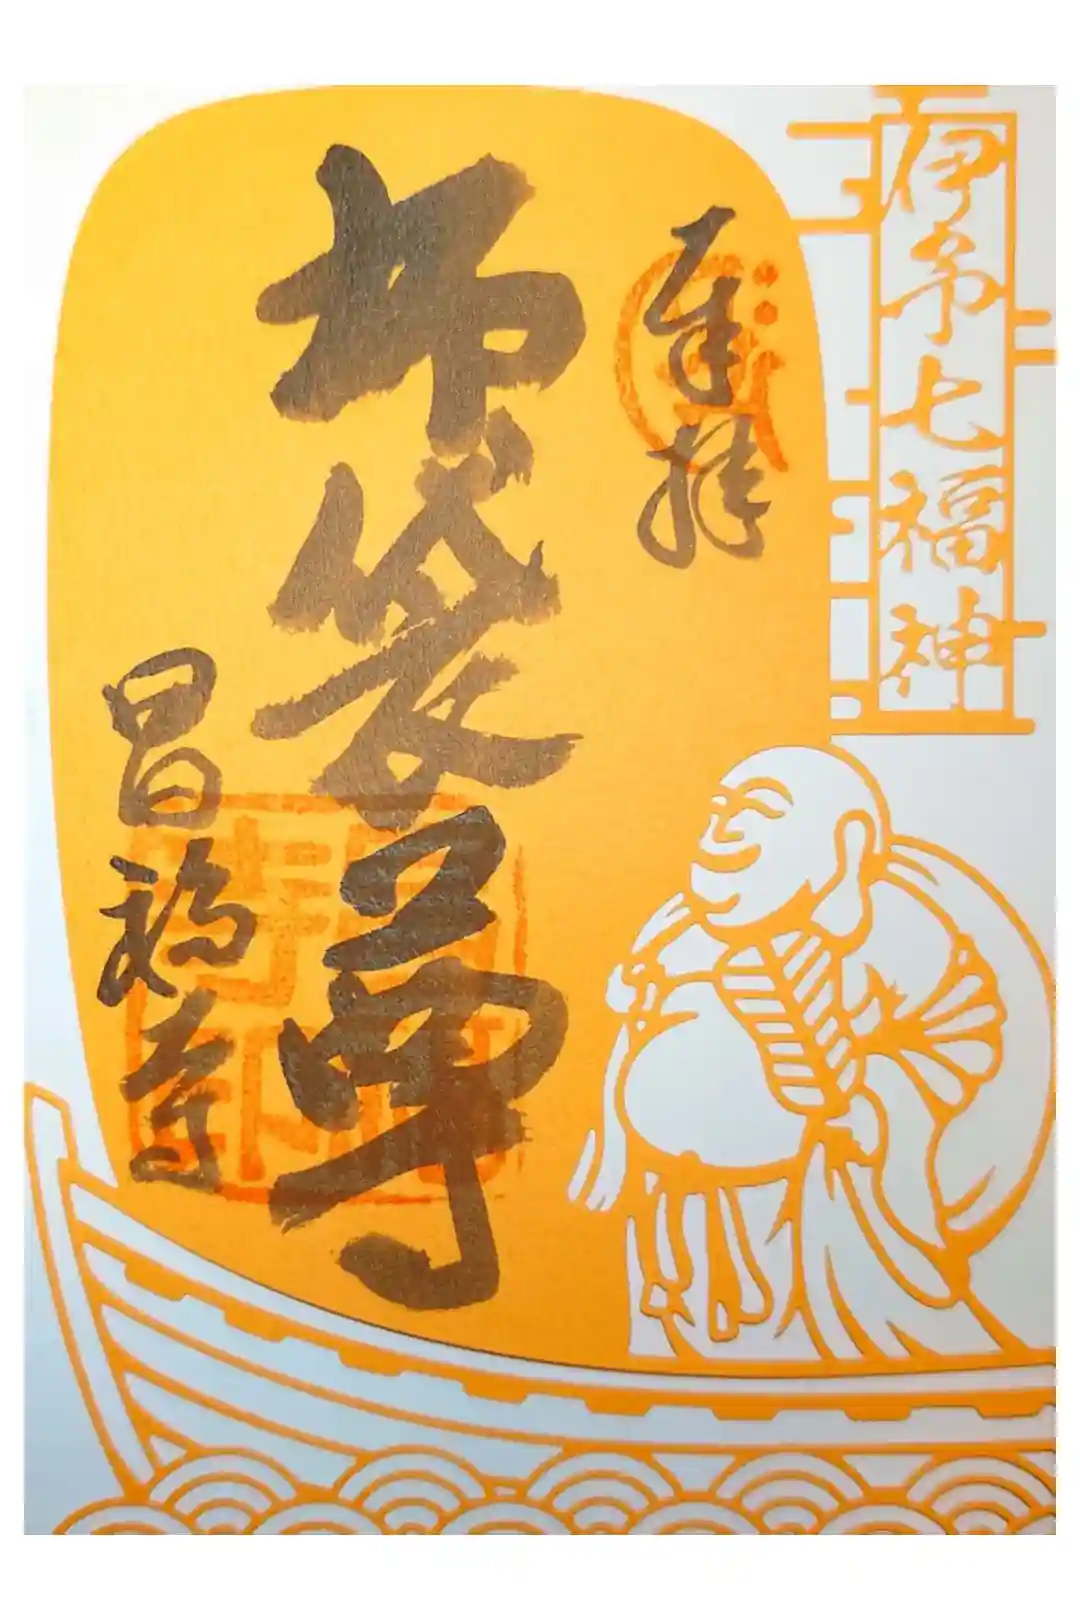 伊予七福神
奉拝
布袋尊
昌福寺